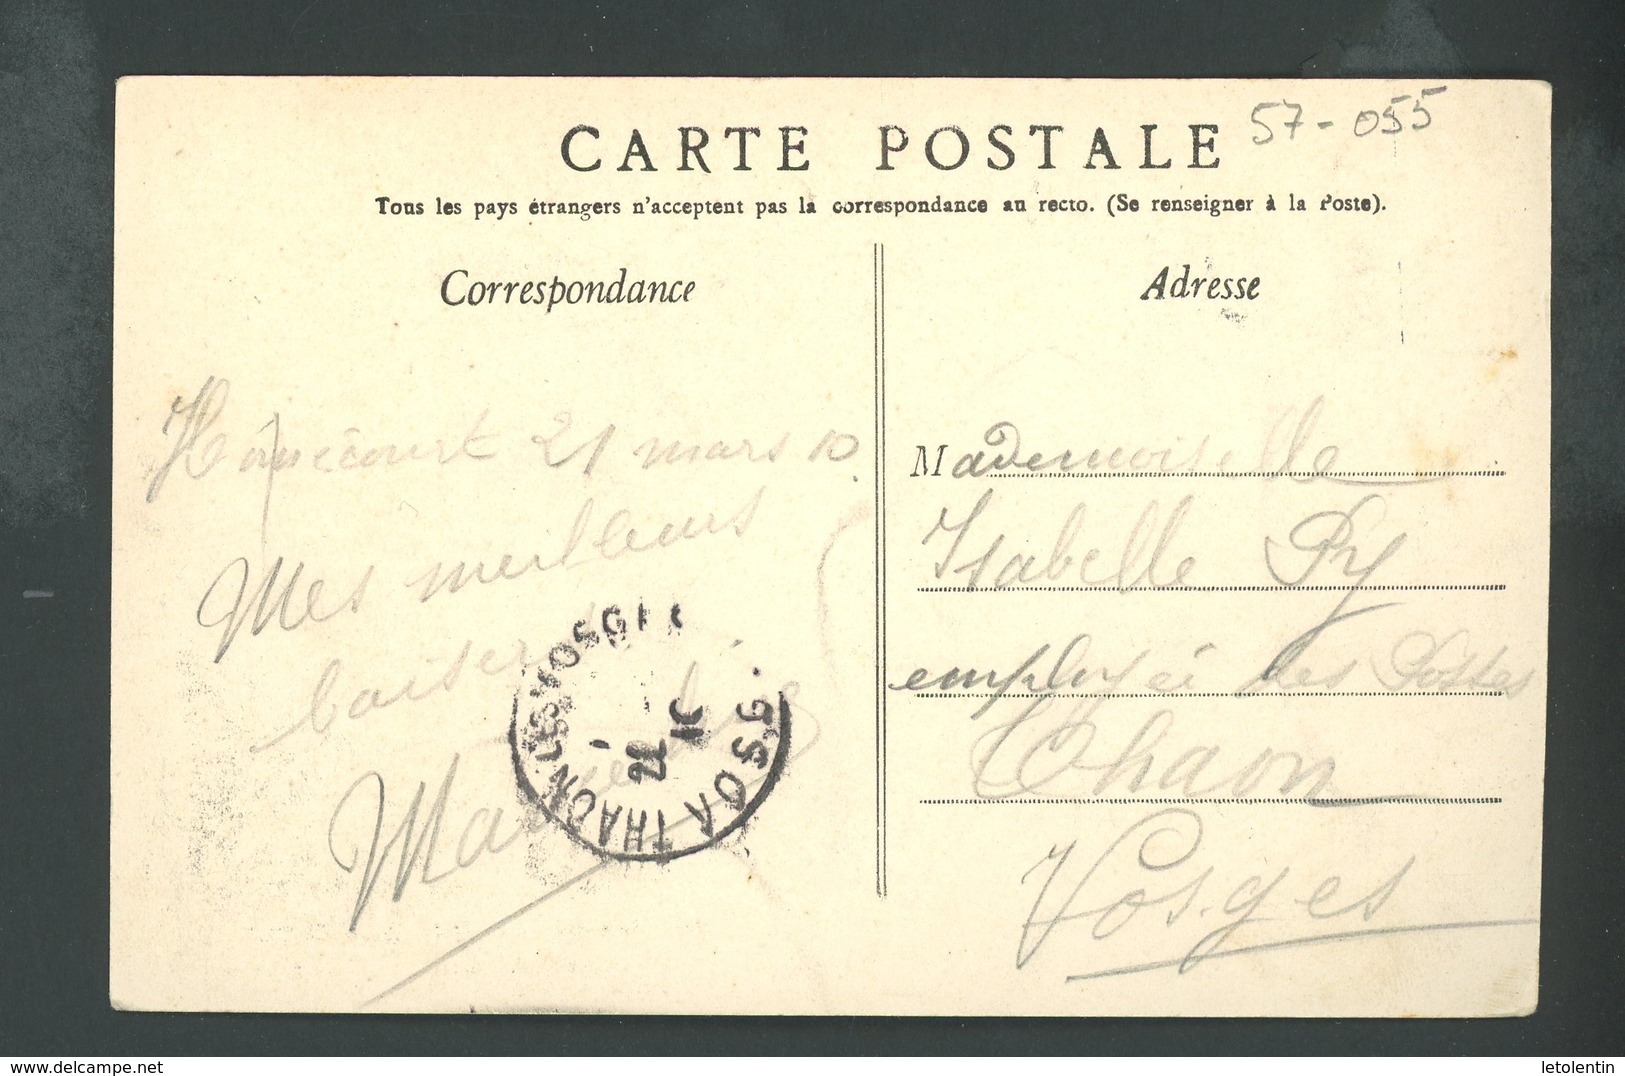 57-055
CARTE POSTALE
Tous les pays étrangers n'acceptent pas la correspondance au recto. (Se renseigner à la Poste).
Correspondance
21 mars 10
Mes meilleurs
baisers
Adresse
Mademoiselle
Isabelle Py
employéi des Postes
Thaon
Vosges
THAON LES VOSGES
22
10
VOSGES
delcampe.net
letolentin